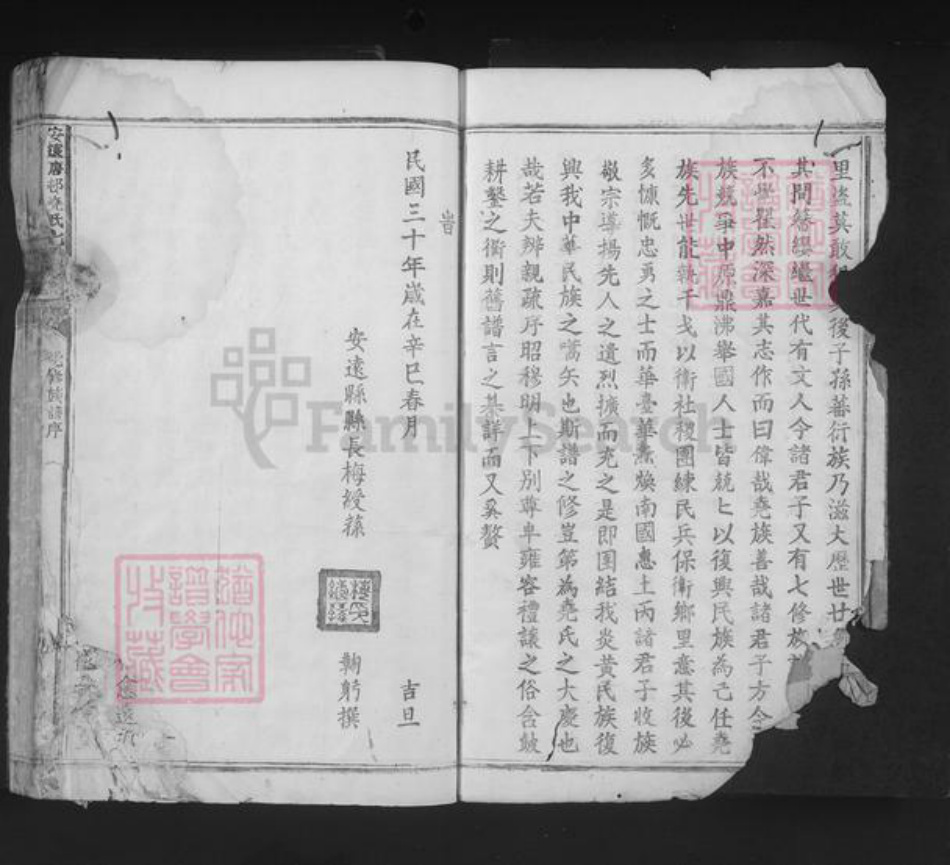 里盜莫敢 後子孫蕃衍族乃滋大歷世廿
其間簪纓繼世代有文人今諸君子又有七修族
不覺瞿然深嘉其志作而曰偉哉堯族善哉諸君子方今
族競爭中原鼎沸舉國人士皆兢匕以復興民族為己任堯
族先世能執干戈以衛社稷團練民兵保衛鄉里意其後必
多慷慨忠勇之士而華臺華燕煥南國惠土丙諸君子收族
敬宗導揚先人之遺烈擴而充之是即團結我炎黃民族復
興我中華民族之嚆矢也斯譜之修豈第為堯氏之大慶也
哉若夫辨親疏序昭穆明上下別尊卑雍容禮讓之俗含皷
耕鑿之衢則舊譜言之綦詳而又奚贅
旹
民國三十年歲在辛巳春月 吉旦
安遠縣縣長梅綬蓀 鞠躬撰
安遠 堯氏七
七修族譜序
猶他家
譜學會
收藏
FamilySearch